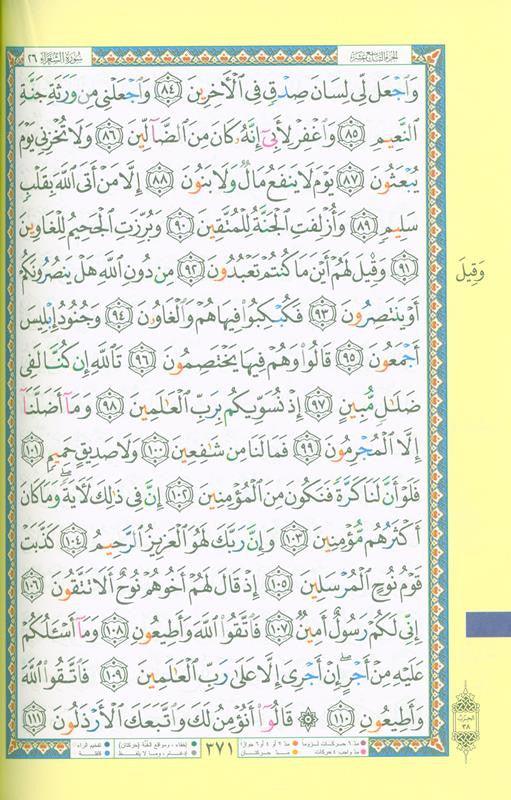 الجزء التاسع عشر
سورة الشعراء ٢٦
وَٱجْعَل لِّى لِسَانَ صِدْقٍ فِى ٱلْأَخِرِينَ ٨٤ وَٱجْعَلْنِى مِن وَرَثَةِ جَنَّةِ
ٱلنَّعِيمِ ٨٥ وَٱغْفِرْ لِأَبِىٓ إِنَّهُۥ كَانَ مِنَ ٱلضَّآلِّينَ ٨٦ وَلَا تُخْزِنِى يَوْمَ
يُبْعَثُونَ ٨٧ يَوْمَ لَا يَنفَعُ مَالٌ وَلَا بَنُونَ ٨٨ إِلَّا مَنْ أَتَى ٱللَّهَ بِقَلْبٍ
سَلِيمٍ ٨٩ وَأُزْلِفَتِ ٱلْجَنَّةُ لِلْمُتَّقِينَ ٩٠ وَبُرِّزَتِ ٱلْجَحِيمُ لِلْغَاوِينَ
٩١ وَقِيلَ لَهُمْ أَيْنَ مَا كُنتُمْ تَعْبُدُونَ ٩٢ مِن دُونِ ٱللَّهِ هَلْ يَنصُرُونَكُمْ
أَوْ يَنتَصِرُونَ ٩٣ فَكُبْكِبُوا۟ فِيهَا هُمْ وَٱلْغَاوُۥنَ ٩٤ وَجُنُودُ إِبْلِيسَ
أَجْمَعُونَ ٩٥ قَالُوا۟ وَهُمْ فِيهَا يَخْتَصِمُونَ ٩٦ تَٱللَّهِ إِن كُنَّا لَفِى
ضَلَٰلٍ مُّبِينٍ ٩٧ إِذْ نُسَوِّيكُم بِرَبِّ ٱلْعَٰلَمِينَ ٩٨ وَمَآ أَضَلَّنَآ
إِلَّا ٱلْمُجْرِمُونَ ٩٩ فَمَا لَنَا مِن شَٰفِعِينَ ١٠٠ وَلَا صَدِيقٍ حَمِيمٍ ١٠١
فَلَوْ أَنَّ لَنَا كَرَّةً فَنَكُونَ مِنَ ٱلْمُؤْمِنِينَ ١٠٢ إِنَّ فِى ذَٰلِكَ لَأَيَةً ۖ وَمَا كَانَ
أَكْثَرُهُم مُّؤْمِنِينَ ١٠٣ وَإِنَّ رَبَّكَ لَهُوَ ٱلْعَزِيزُ ٱلرَّحِيمُ ١٠٤ كَذَّبَتْ
قَوْمُ نُوحٍ ٱلْمُرْسَلِينَ ١٠٥ إِذْ قَالَ لَهُمْ أَخُوهُمْ نُوحٌ أَلَا تَتَّقُونَ ١٠٦
إِنِّى لَكُمْ رَسُولٌ أَمِينٌ ١٠٧ فَٱتَّقُوا۟ ٱللَّهَ وَأَطِيعُونِ ١٠٨ وَمَآ أَسْـَٔلُكُمْ
عَلَيْهِ مِنْ أَجْرٍ ۖ إِنْ أَجْرِىَ إِلَّا عَلَىٰ رَبِّ ٱلْعَٰلَمِينَ ١٠٩ فَٱتَّقُوا۟ ٱللَّهَ
وَأَطِيعُونِ ١١٠ ۞ قَالُوٓا۟ أَنُؤْمِنُ لَكَ وَٱتَّبَعَكَ ٱلْأَرْذَلُونَ ١١١
وَقِيلَ
الحزب
٣٨
مدّ ٦ حركات لزوماً
مدّ ٢ أو ٤ أو ٦ جوازاً
مدّ واجب ٤ حركات
مدّ حركتان
٣٧١
إخفاء، ومواقع الغُنَّة (حركتان)
تفخيم الراء
إدغام، وما لا يُلفظ
قلقلة